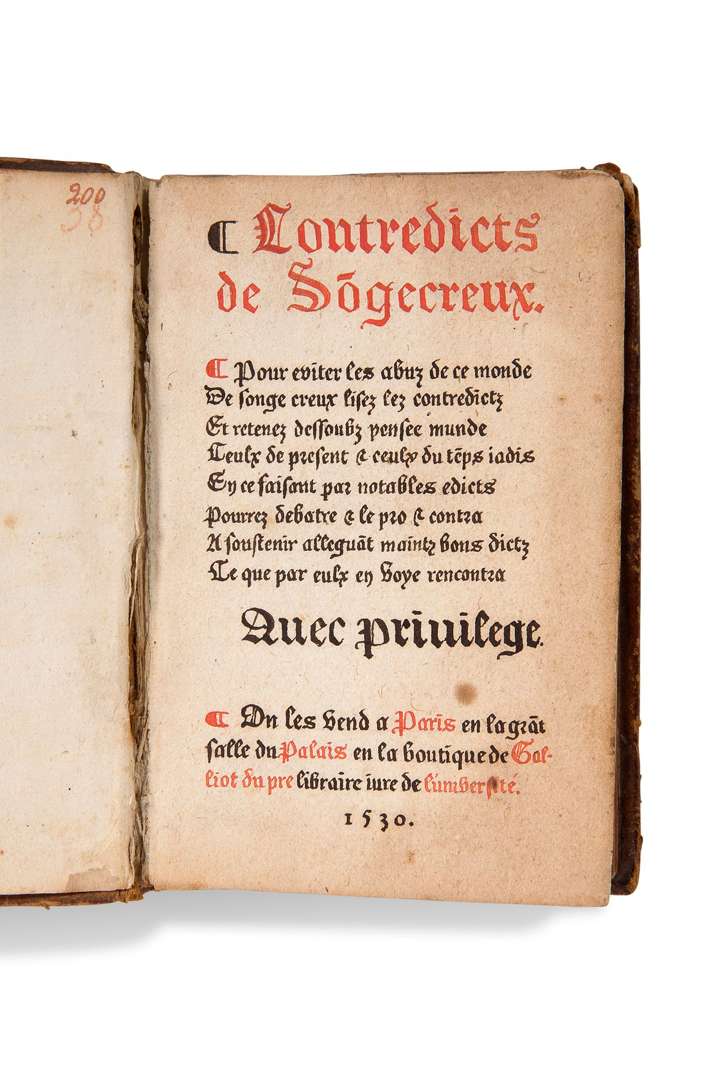 200
38
¶ Contredicts
de Sōgecreux.
¶ Pour eviter les abuz de ce monde
De songe creux lisez lez contredictz
Et retenez dessoubz pensee munde
Ceulx de present & ceulx du tēps iadis
En ce faisant par notables edicts
Pourrez debatre & le pro & contra
A soustenir alleguāt maintz bons dictz
Ce que par eulx en voye rencontra
Auec priuilege.
¶ On les vend a Paris en la grāt
salle du Palais en la boutique de Gal-
liot du pre libraire iure de l'université.
1530.